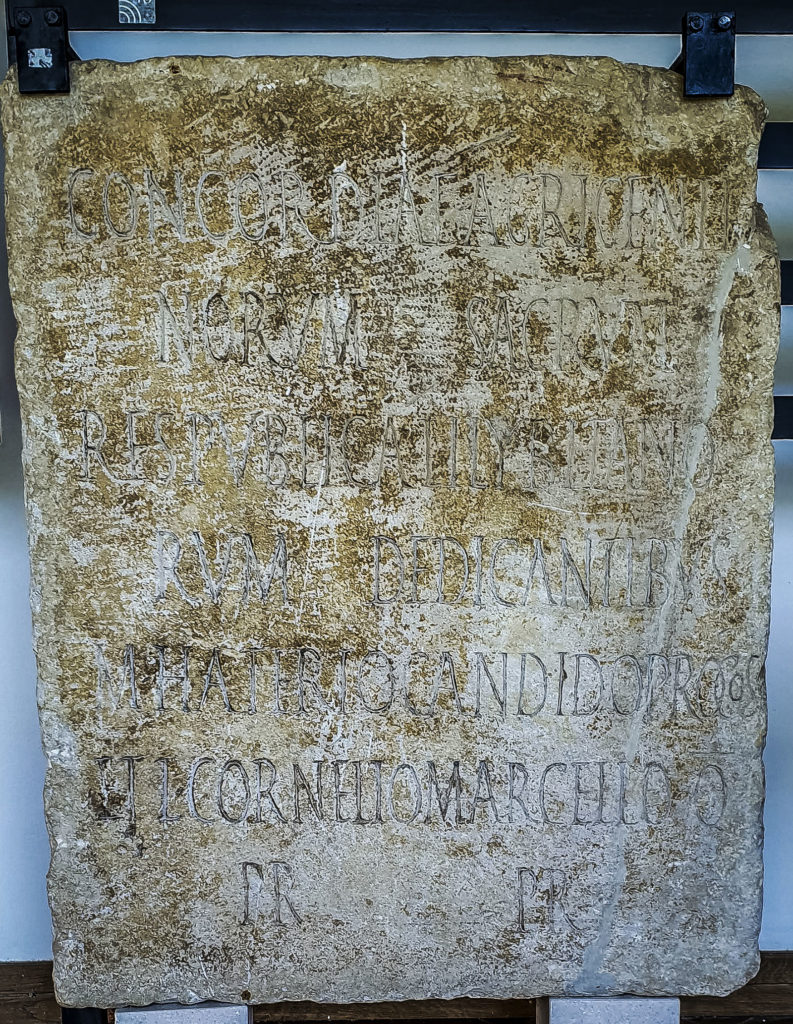 CONCORDIAE AGRIGENTI
NORVM SACRVM
RESPVBLICA LILYBITANO
RVM DEDICANTIBVS
M HATERIO CANDIDO PROCOS
ET L CORNELIO MARCELLO Q
PR PR